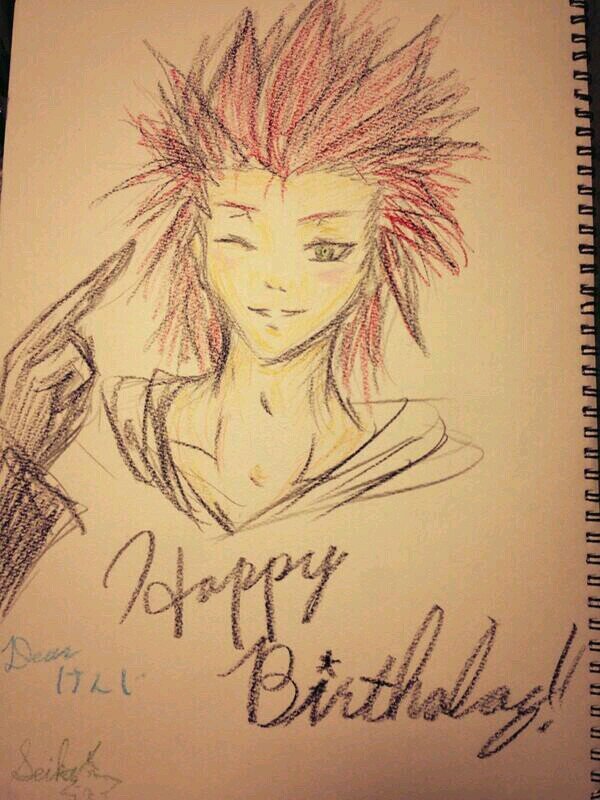 Happy
Birthday!!
Dear
Seika